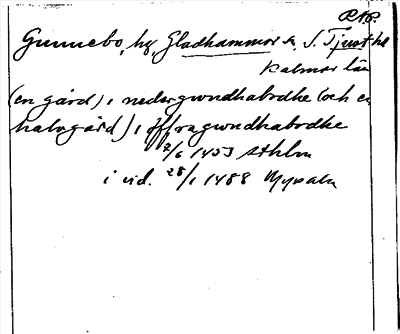 RAP.
Gunnebo, hg, Gladhammar sn, S. Tjust hd
Kalmar län
(en gård) i nedergwndhabodhe (och en
halv gård) i öffragwndhabodhe
2/6 1453 Sthlm
i vid. 28/1 1488 Uppsala